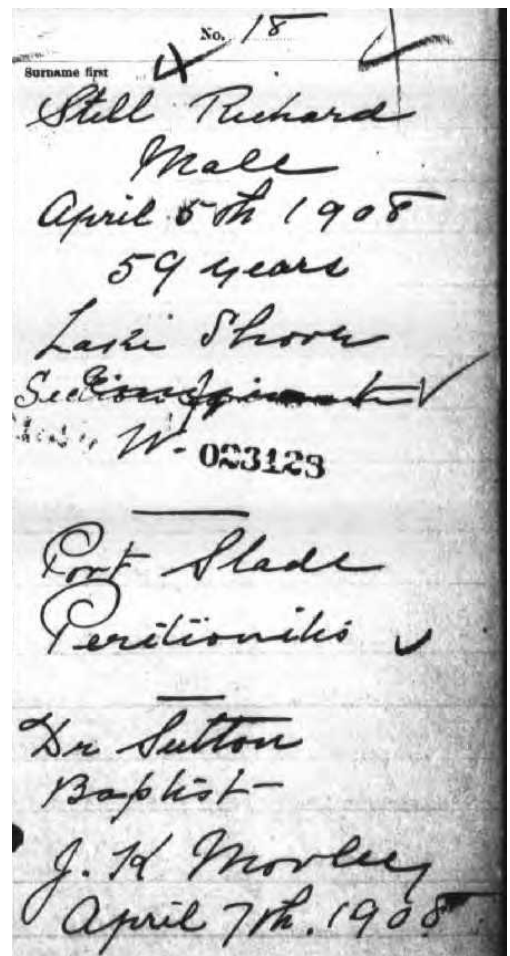 No. 18
Surname first
Still Richard
Male
April 5th 1908
59 years
Lake Shore
W. 023123
Port Slade
Peritionitis
Dr Sutton
Baptist
J. K Morley
April 7th. 1908